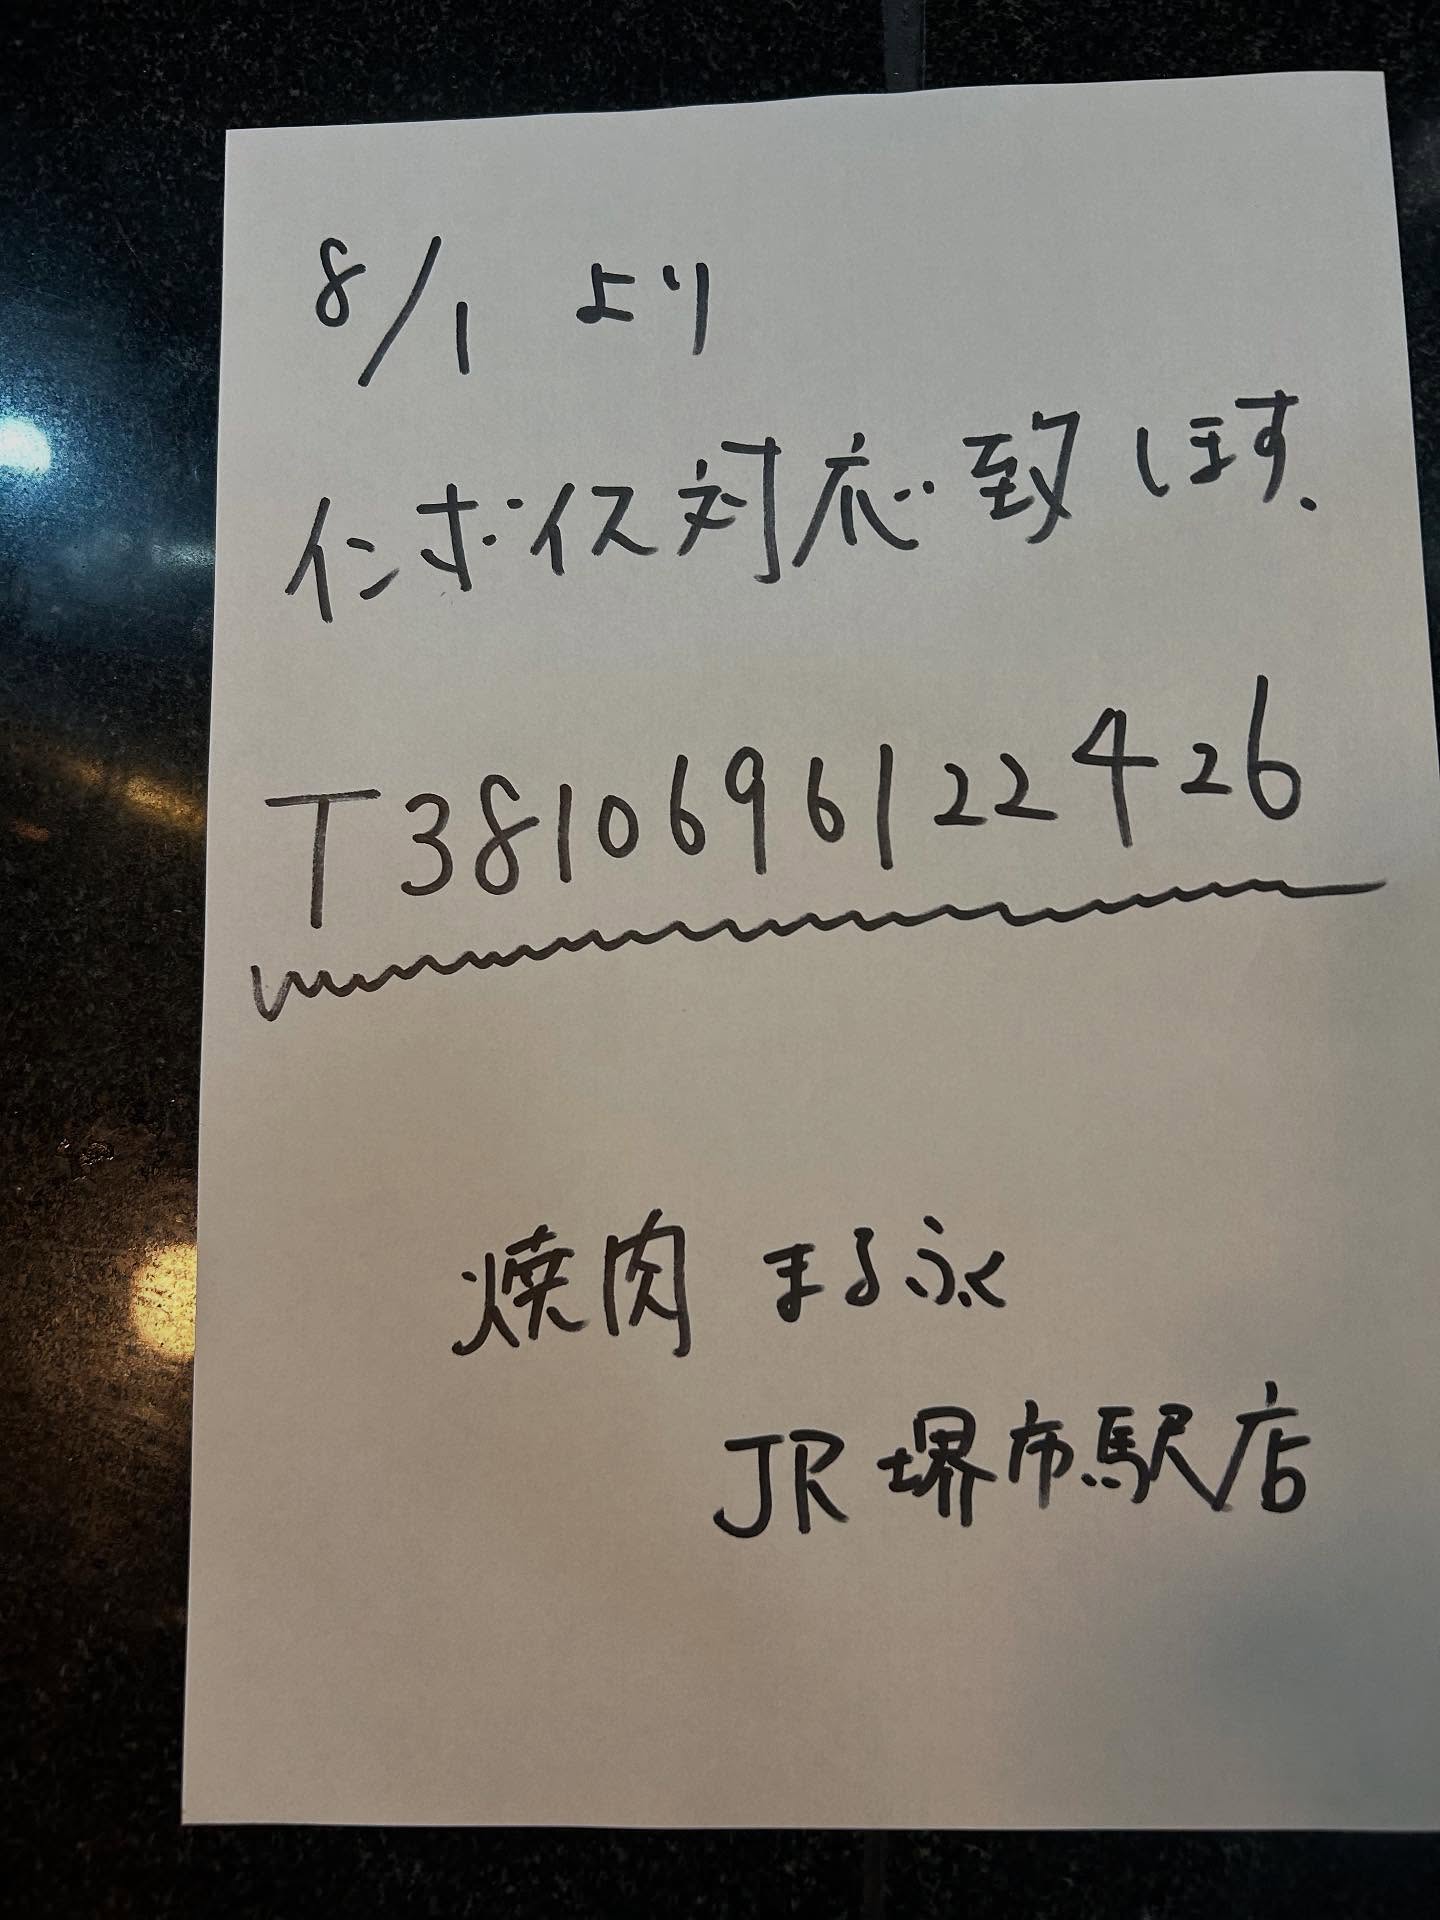 8/1 より
インボイス対応致します.
T3810696122426
焼肉 まるふく
JR堺市駅店